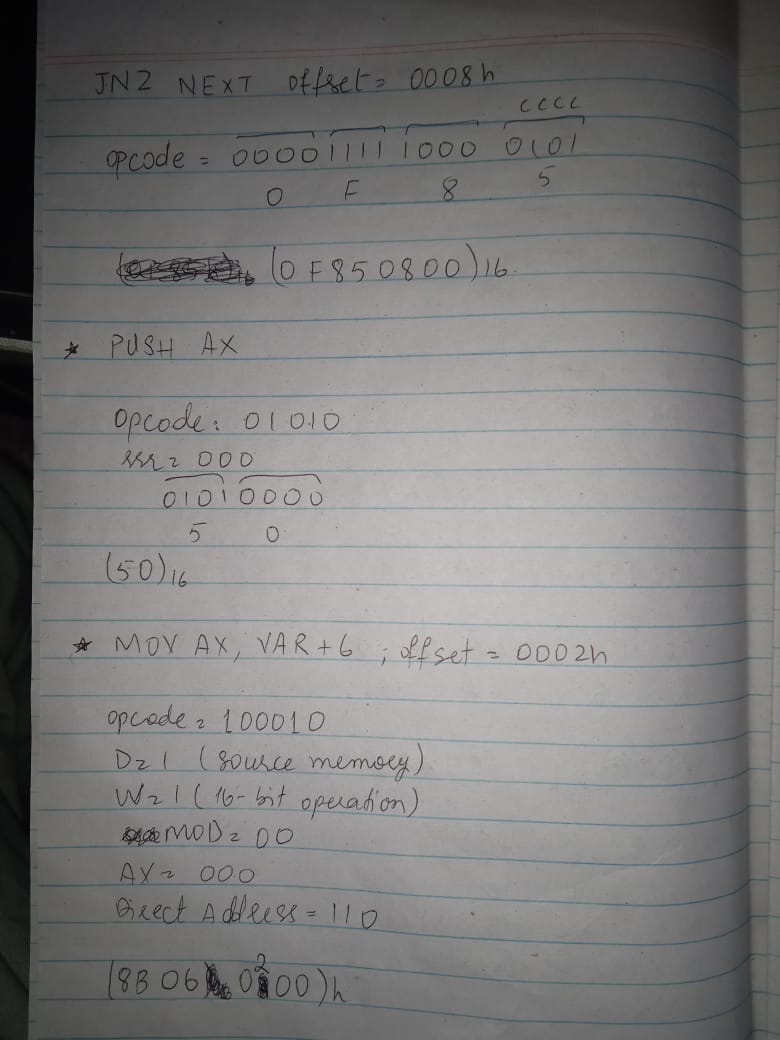 JNZ NEXT Offset = 0008h
cccc
opcode = 0000 1111 1000 0101
0 F 8 5
(0F850800)16
* PUSH AX
Opcode: 01010
rrr = 000
0101 0000
5 0
(50)16
* MOV AX, VAR+6 ; offset = 0002h
opcode = 100010
D=1 (source memory)
W=1 (16-bit operation)
MOD = 00
AX = 000
Direct Address = 110
(8B 06 0200)h